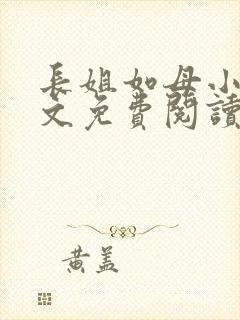 長姐如母小
文免費閱讀
黄盖